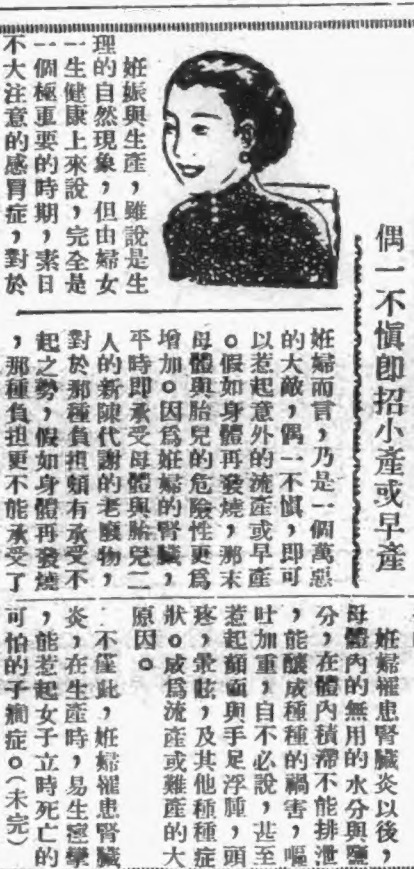 偶一不慎即招小產或早產
妊娠與生產，雖說是生
理的自然現象，但由婦女
一生健康上來說，完全是
一個極重要的時期，素日
不大注意的感冒症，對於
妊婦而言，乃是一個萬惡
的大敵，偶一不慎，即可
以惹起意外的流產或早產
。假如身體再發燒，那末
母體與胎兒的危險性更爲
增加。因爲妊婦的腎臟，
平時即承受母體與胎兒二
人的新陳代謝的老廢物，
對於那種負担頗有承受不
起之勢，假如身體再發燒
，那種負担更不能承受了
妊婦罹患腎臟炎以後，
母體內的無用的水分與鹽
分，在體內積滯不能排泄
，能釀成種種的禍害，嘔
吐加重，自不必說，甚至
惹起顏面與手足浮腫，頭
疼，暈眩，及其他種種症
狀。成爲流產或難產的大
原因。
不僅此，妊婦罹患腎臟
炎，在生產時，易生痙攣
，能惹起女子立時死亡的
可怕的子癇症。（未完）